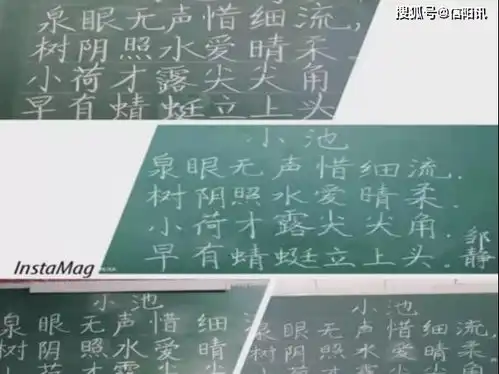 搜狐号@信阳讯
泉眼无声惜细流，
树阴照水爱晴柔.
小荷才露尖尖角
早有蜻蜓立上头
小池
泉眼无声惜细流.
树阴照水爱晴柔.
小荷才露尖尖角.
早有蜻蜓立上头.
邹静
InstaMag
小池
泉眼无声惜细
树阴照水爱晴
小荷才露尖尖
小池
泉眼无声惜细流,
树阴照水爱晴柔
小荷才露尖尖角